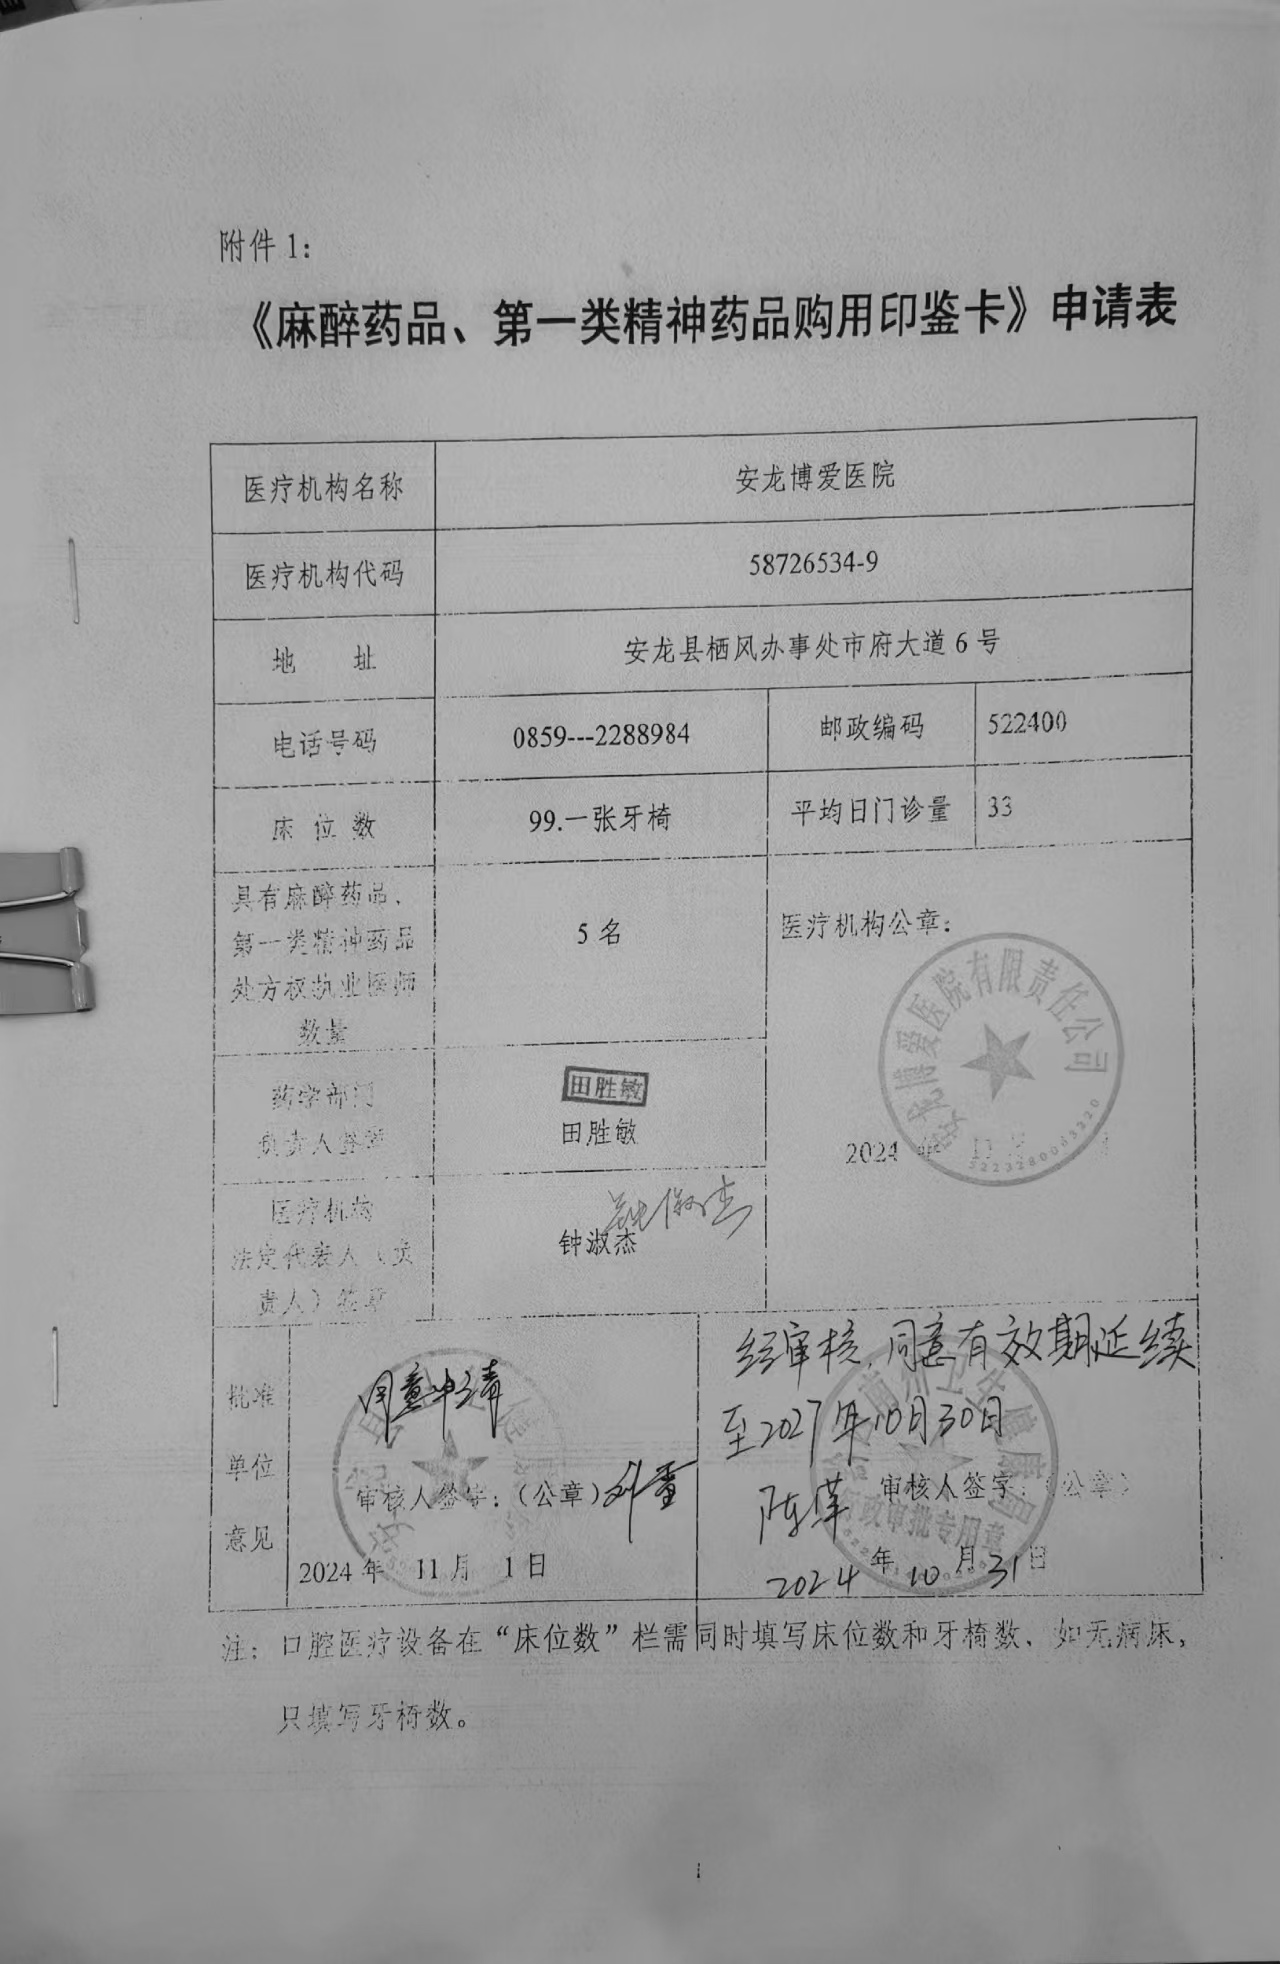 附件 1:
《麻醉药品、第一类精神药品购用印鉴卡》申请表
医疗机构名称
安龙博爱医院
医疗机构代码
58726534-9
地 址
安龙县栖风办事处市府大道 6 号
电话号码
0859---2288984
邮政编码
522400
床 位 数
99.一张牙椅
平均日门诊量
33
具有麻醉药品、
第一类精神药品
处方权执业医师
数量
5 名
医疗机构公章:
安龙博爱医院有限责任公司
2024 年 11 月
药学部门
负责人签章
田胜敏
田胜敏
医疗机构
法定代表人（负
责人）签章
钟淑杰
钟淑杰
批准
单位
意见
同意申请
审核人签字:（公章）
2024 年 11 月 1 日
经审核,同意有效期延续
至2027年10月30日
审核人签字:（公章）
行政审批专用章
2024 年 10 月 31 日
注: 口腔医疗设备在“床位数”栏需同时填写床位数和牙椅数、如无病床,
只填写牙椅数。
1